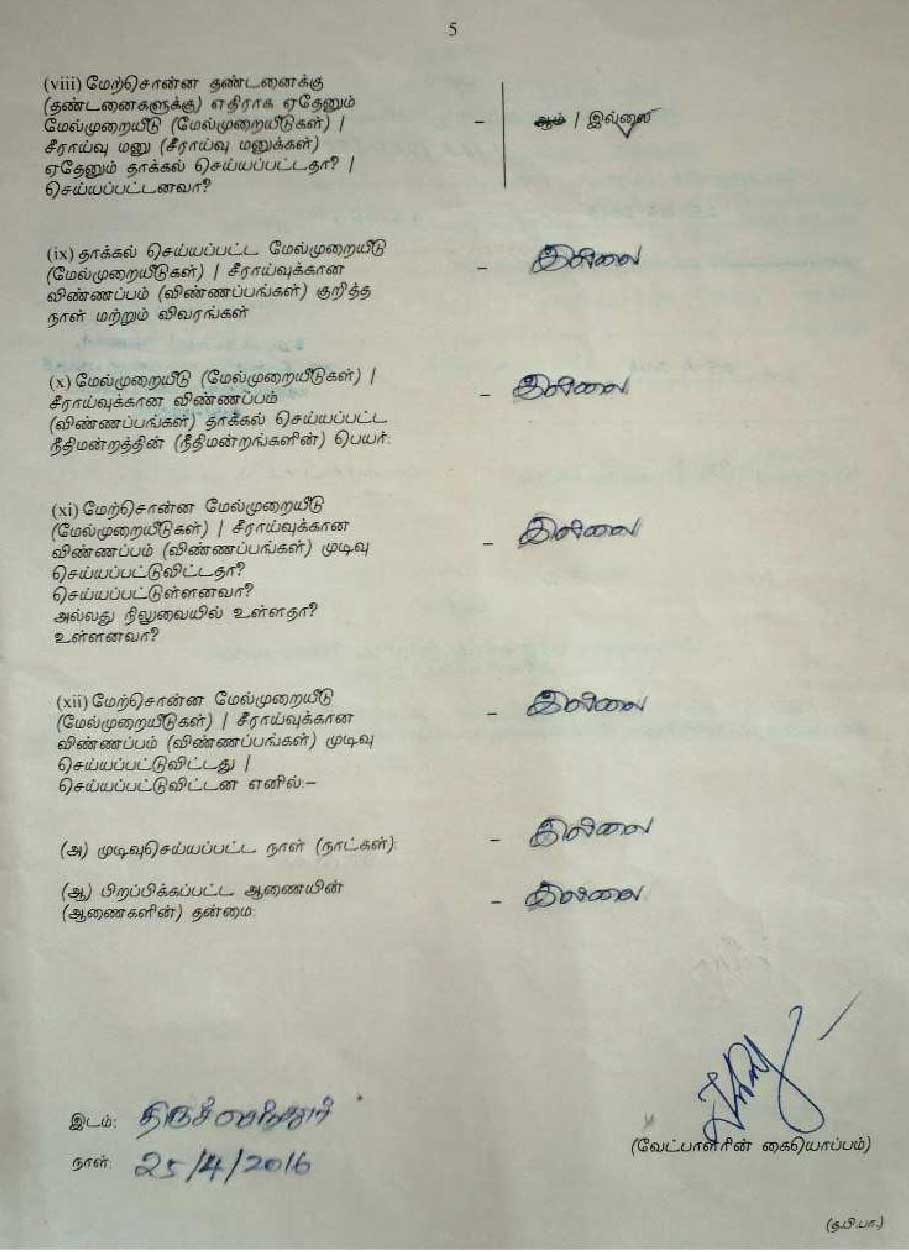 5
(viii) மேற்சொன்ன தண்டனைக்கு
(தண்டனைகளுக்கு) எதிராக ஏதேனும்
மேல்முறையீடு (மேல்முறையீடுகள்) | – ஆம் | இல்லை
சீராய்வு மனு (சீராய்வு மனுக்கள்)
ஏதேனும் தாக்கல் செய்யப்பட்டதா? |
செய்யப்பட்டனவா?
(ix) தாக்கல் செய்யப்பட்ட மேல்முறையீடு – இல்லை
(மேல்முறையீடுகள்) | சீராய்வுக்கான
விண்ணப்பம் (விண்ணப்பங்கள்) குறித்த
நாள் மற்றும் விவரங்கள்
(x) மேல்முறையீடு (மேல்முறையீடுகள்) | – இல்லை
சீராய்வுக்கான விண்ணப்பம்
(விண்ணப்பங்கள்) தாக்கல் செய்யப்பட்ட
நீதிமன்றத்தின் (நீதிமன்றங்களின்) பெயர்:
(xi) மேற்சொன்ன மேல்முறையீடு
(மேல்முறையீடுகள்) | சீராய்வுக்கான – இல்லை
விண்ணப்பம் (விண்ணப்பங்கள்) முடிவு
செய்யப்பட்டுவிட்டதா?
செய்யப்பட்டுள்ளனவா?
அல்லது நிலுவையில் உள்ளதா?
உள்ளனவா?
(xii) மேற்சொன்ன மேல்முறையீடு – இல்லை
(மேல்முறையீடுகள்) | சீராய்வுக்கான
விண்ணப்பம் (விண்ணப்பங்கள்) முடிவு
செய்யப்பட்டுவிட்டது |
செய்யப்பட்டுவிட்டன எனில்:–
(அ) முடிவுசெய்யப்பட்ட நாள் (நாட்கள்): – இல்லை
(ஆ) பிறப்பிக்கப்பட்ட ஆணையின் – இல்லை
(ஆணைகளின்) தன்மை:
இடம்: திருச்செந்தூர்
(வேட்பாளரின் கையொப்பம்)
நாள்: 25/4/2016
(த.பி.பா.)